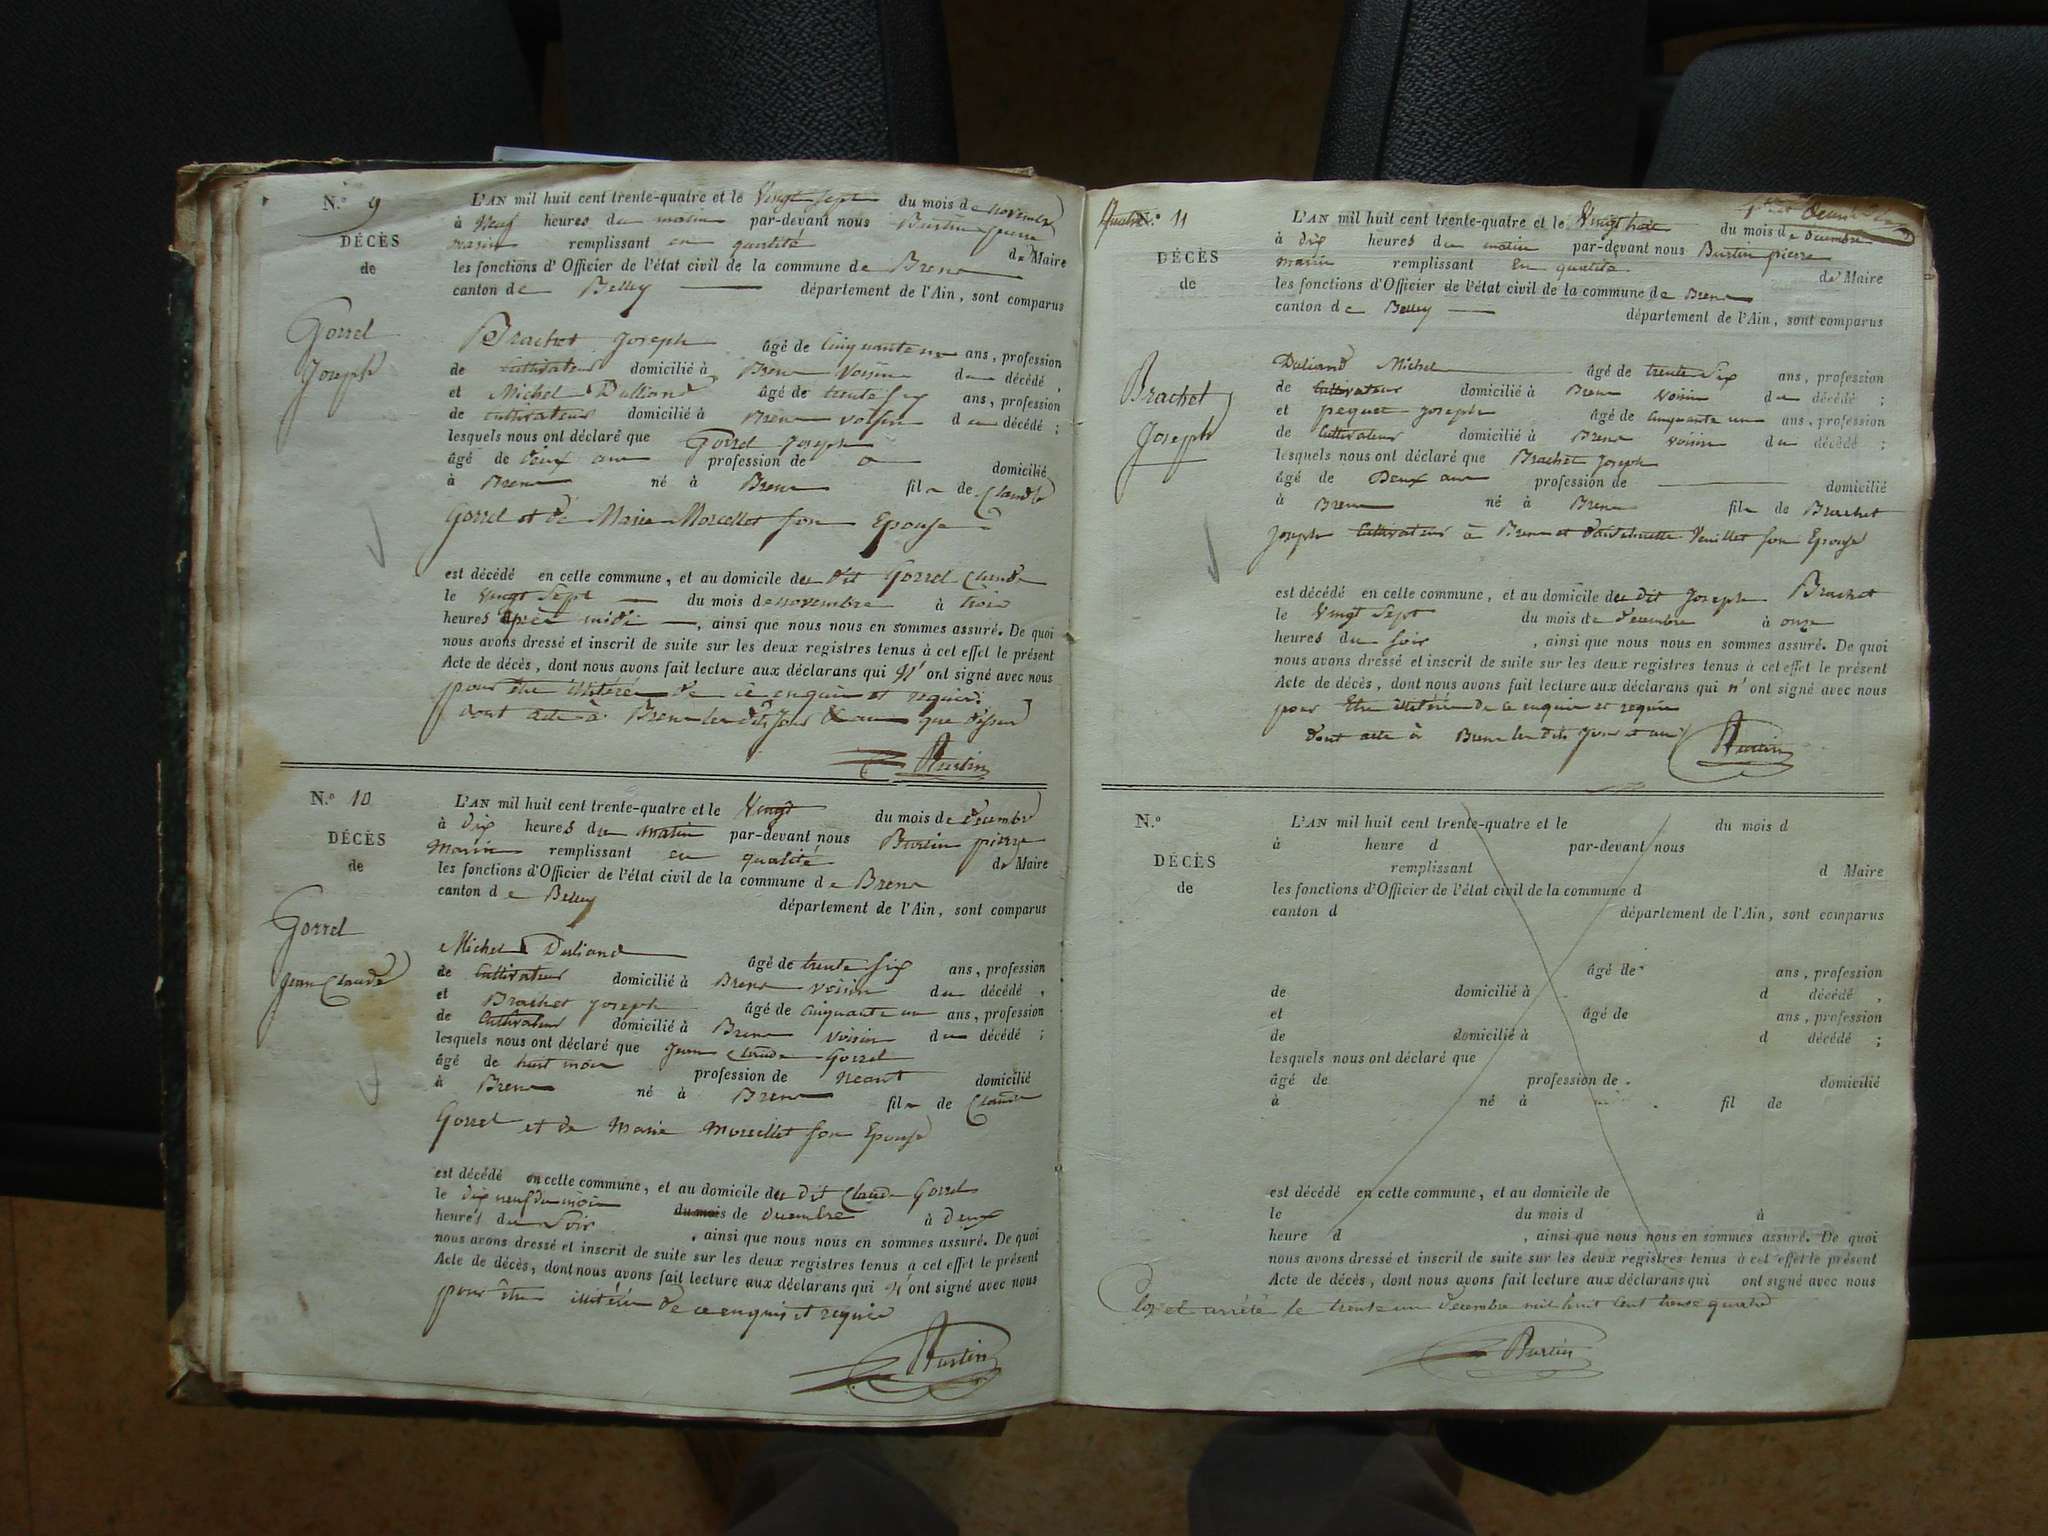 N.º 9
DÉCÈS
de
Gorrel
Joseph
L'AN mil huit cent trente-quatre et le Vingt sept du mois de novembre
à Neuf heures du matin par-devant nous Burtin pierre
remplissant en qualité de Maire
les fonctions d'Officier de l'état civil de la commune de Brens
canton de Belley département de l'Ain, sont comparus
Brachet Joseph âgé de Cinquante un ans, profession
de Cultivateur domicilié à Brens Voisin du décédé,
et Michel Dulliand âgé de trente six ans, profession
de Cultivateur domicilié à Brens voisin du décédé;
lesquels nous ont déclaré que Gorrel Joseph
âgé de deux ans profession de domicilié
à Brens né à Brens fils de Claude
Gorrel et de Marie Morcellet son Epouse
est décédé en cette commune, et au domicile du dit Gorrel Claude
le vingt sept du mois de novembre à trois
heures après midi, ainsi que nous nous en sommes assuré. De quoi
nous avons dressé et inscrit de suite sur les deux registres tenus à cet effet le présent
Acte de décès, dont nous avons fait lecture aux déclarans qui n'ont signé avec nous
pour être illitérés de ce enquis et requis.
dont acte à Brens les dits jour et an que dessus
Burtin
N.º 10
DÉCÈS
de
Gorrel
Jean Claude
L'AN mil huit cent trente-quatre et le Vingt du mois de decembre
à dix heures du matin par-devant nous Burtin pierre
remplissant en qualité de Maire
les fonctions d'Officier de l'état civil de la commune de Brens
canton de Belley département de l'Ain, sont comparus
Michel Duliand âgé de trente six ans, profession
de Cultivateur domicilié à Brens voisin du décédé,
et Brachet Joseph âgé de Cinquante un ans, profession
de Cultivateur domicilié à Brens voisin du décédé;
lesquels nous ont déclaré que Jean Claude Gorrel
âgé de huit mois profession de Neant domicilié
à Brens né à Brens fils de Claude
Gorrel et de Marie Morcellet son Epouse
est décédé en cette commune, et au domicile du dit Claude Gorrel
le dix neuf du mois du mois de decembre à deux
heures du Soir, ainsi que nous nous en sommes assuré. De quoi
nous avons dressé et inscrit de suite sur les deux registres tenus à cet effet le présent
Acte de décès, dont nous avons fait lecture aux déclarans qui n'ont signé avec nous
pour être illitérés de ce enquis et requis
Burtin
N.º 11
DÉCÈS
de
Brachet
Joseph
L'AN mil huit cent trente-quatre et le Vingt huit du mois de decembre
à dix heures du matin par-devant nous Burtin pierre
remplissant en qualité de Maire
les fonctions d'Officier de l'état civil de la commune de Brens
canton de Belley département de l'Ain, sont comparus
Duliand Michel âgé de trente six ans, profession
de Cultivateur domicilié à Brens voisin du décédé;
et pequet Joseph âgé de Cinquante un ans, profession
de Cultivateur domicilié à Brens voisin du décédé;
lesquels nous ont déclaré que Brachet Joseph
âgé de Deux ans profession de domicilié
à Brens né à Brens fils de Brachet
Joseph Cultivateur à Brens et Veuillet son Epouse
est décédé en cette commune, et au domicile du dit Joseph Brachet
le Vingt Sept du mois de decembre à onze
heures du soir, ainsi que nous nous en sommes assuré. De quoi
nous avons dressé et inscrit de suite sur les deux registres tenus à cet effet le présent
Acte de décès, dont nous avons fait lecture aux déclarans qui n'ont signé avec nous
pour Etre illitérés de ce enquis et requis
Dont acte à Brens les dits jour et an
Burtin
N.º
DÉCÈS
de
L'AN mil huit cent trente-quatre et le du mois d
à heure d par-devant nous
remplissant d Maire
les fonctions d'Officier de l'état civil de la commune d
canton d département de l'Ain, sont comparus
âgé de ans, profession
de domicilié à d décédé,
et âgé de ans, profession
de domicilié à d décédé;
lesquels nous ont déclaré que
âgé de profession de domicilié
à né à fil de
est décédé en cette commune, et au domicile de
le du mois d à
heure d, ainsi que nous nous en sommes assuré. De quoi
nous avons dressé et inscrit de suite sur les deux registres tenus à cet effet le présent
Acte de décès, dont nous avons fait lecture aux déclarans qui ont signé avec nous
Clos et arrété le trente un decembre mil huit cent trente quatre
Burtin